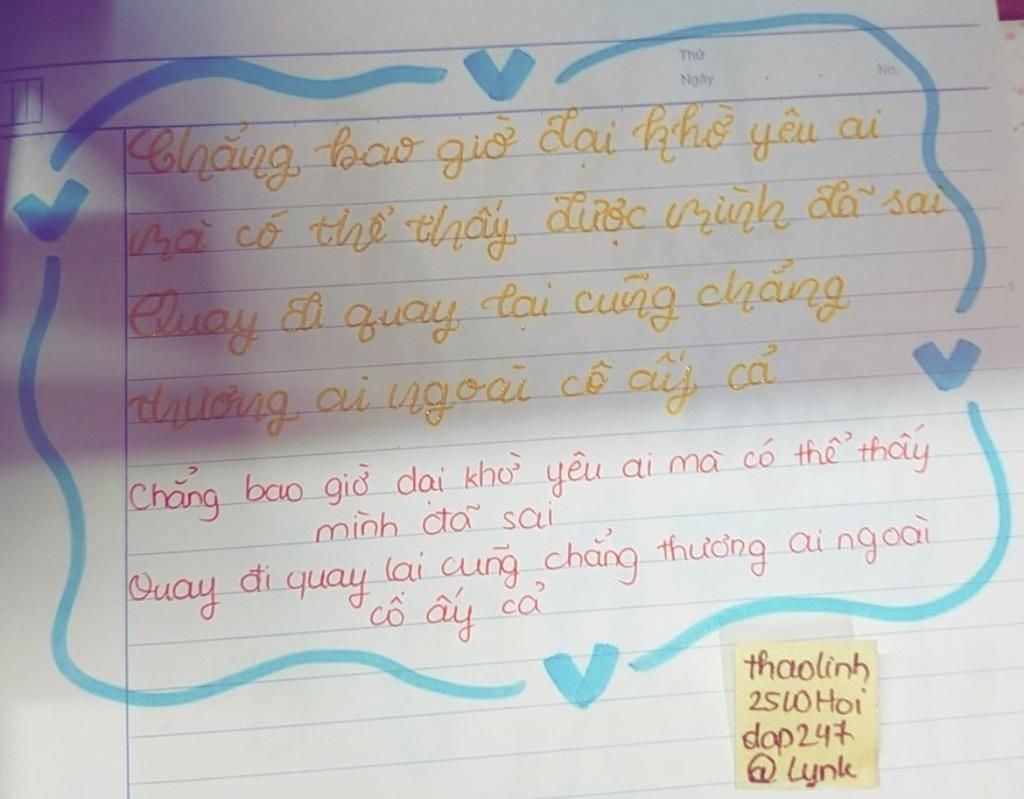 Thứ
Ngày
No.
Chẳng bao giờ dại khờ yêu ai
mà có thể thấy được mình đã sai
Quay đi quay lại cũng chẳng
thương ai ngoài cô ấy cả
Chẳng bao giờ dại khờ yêu ai mà có thể thấy
mình đã sai
Quay đi quay lại cũng chẳng thương ai ngoài
cô ấy cả
thaolinh
25WHoi
dap247
@Lynk